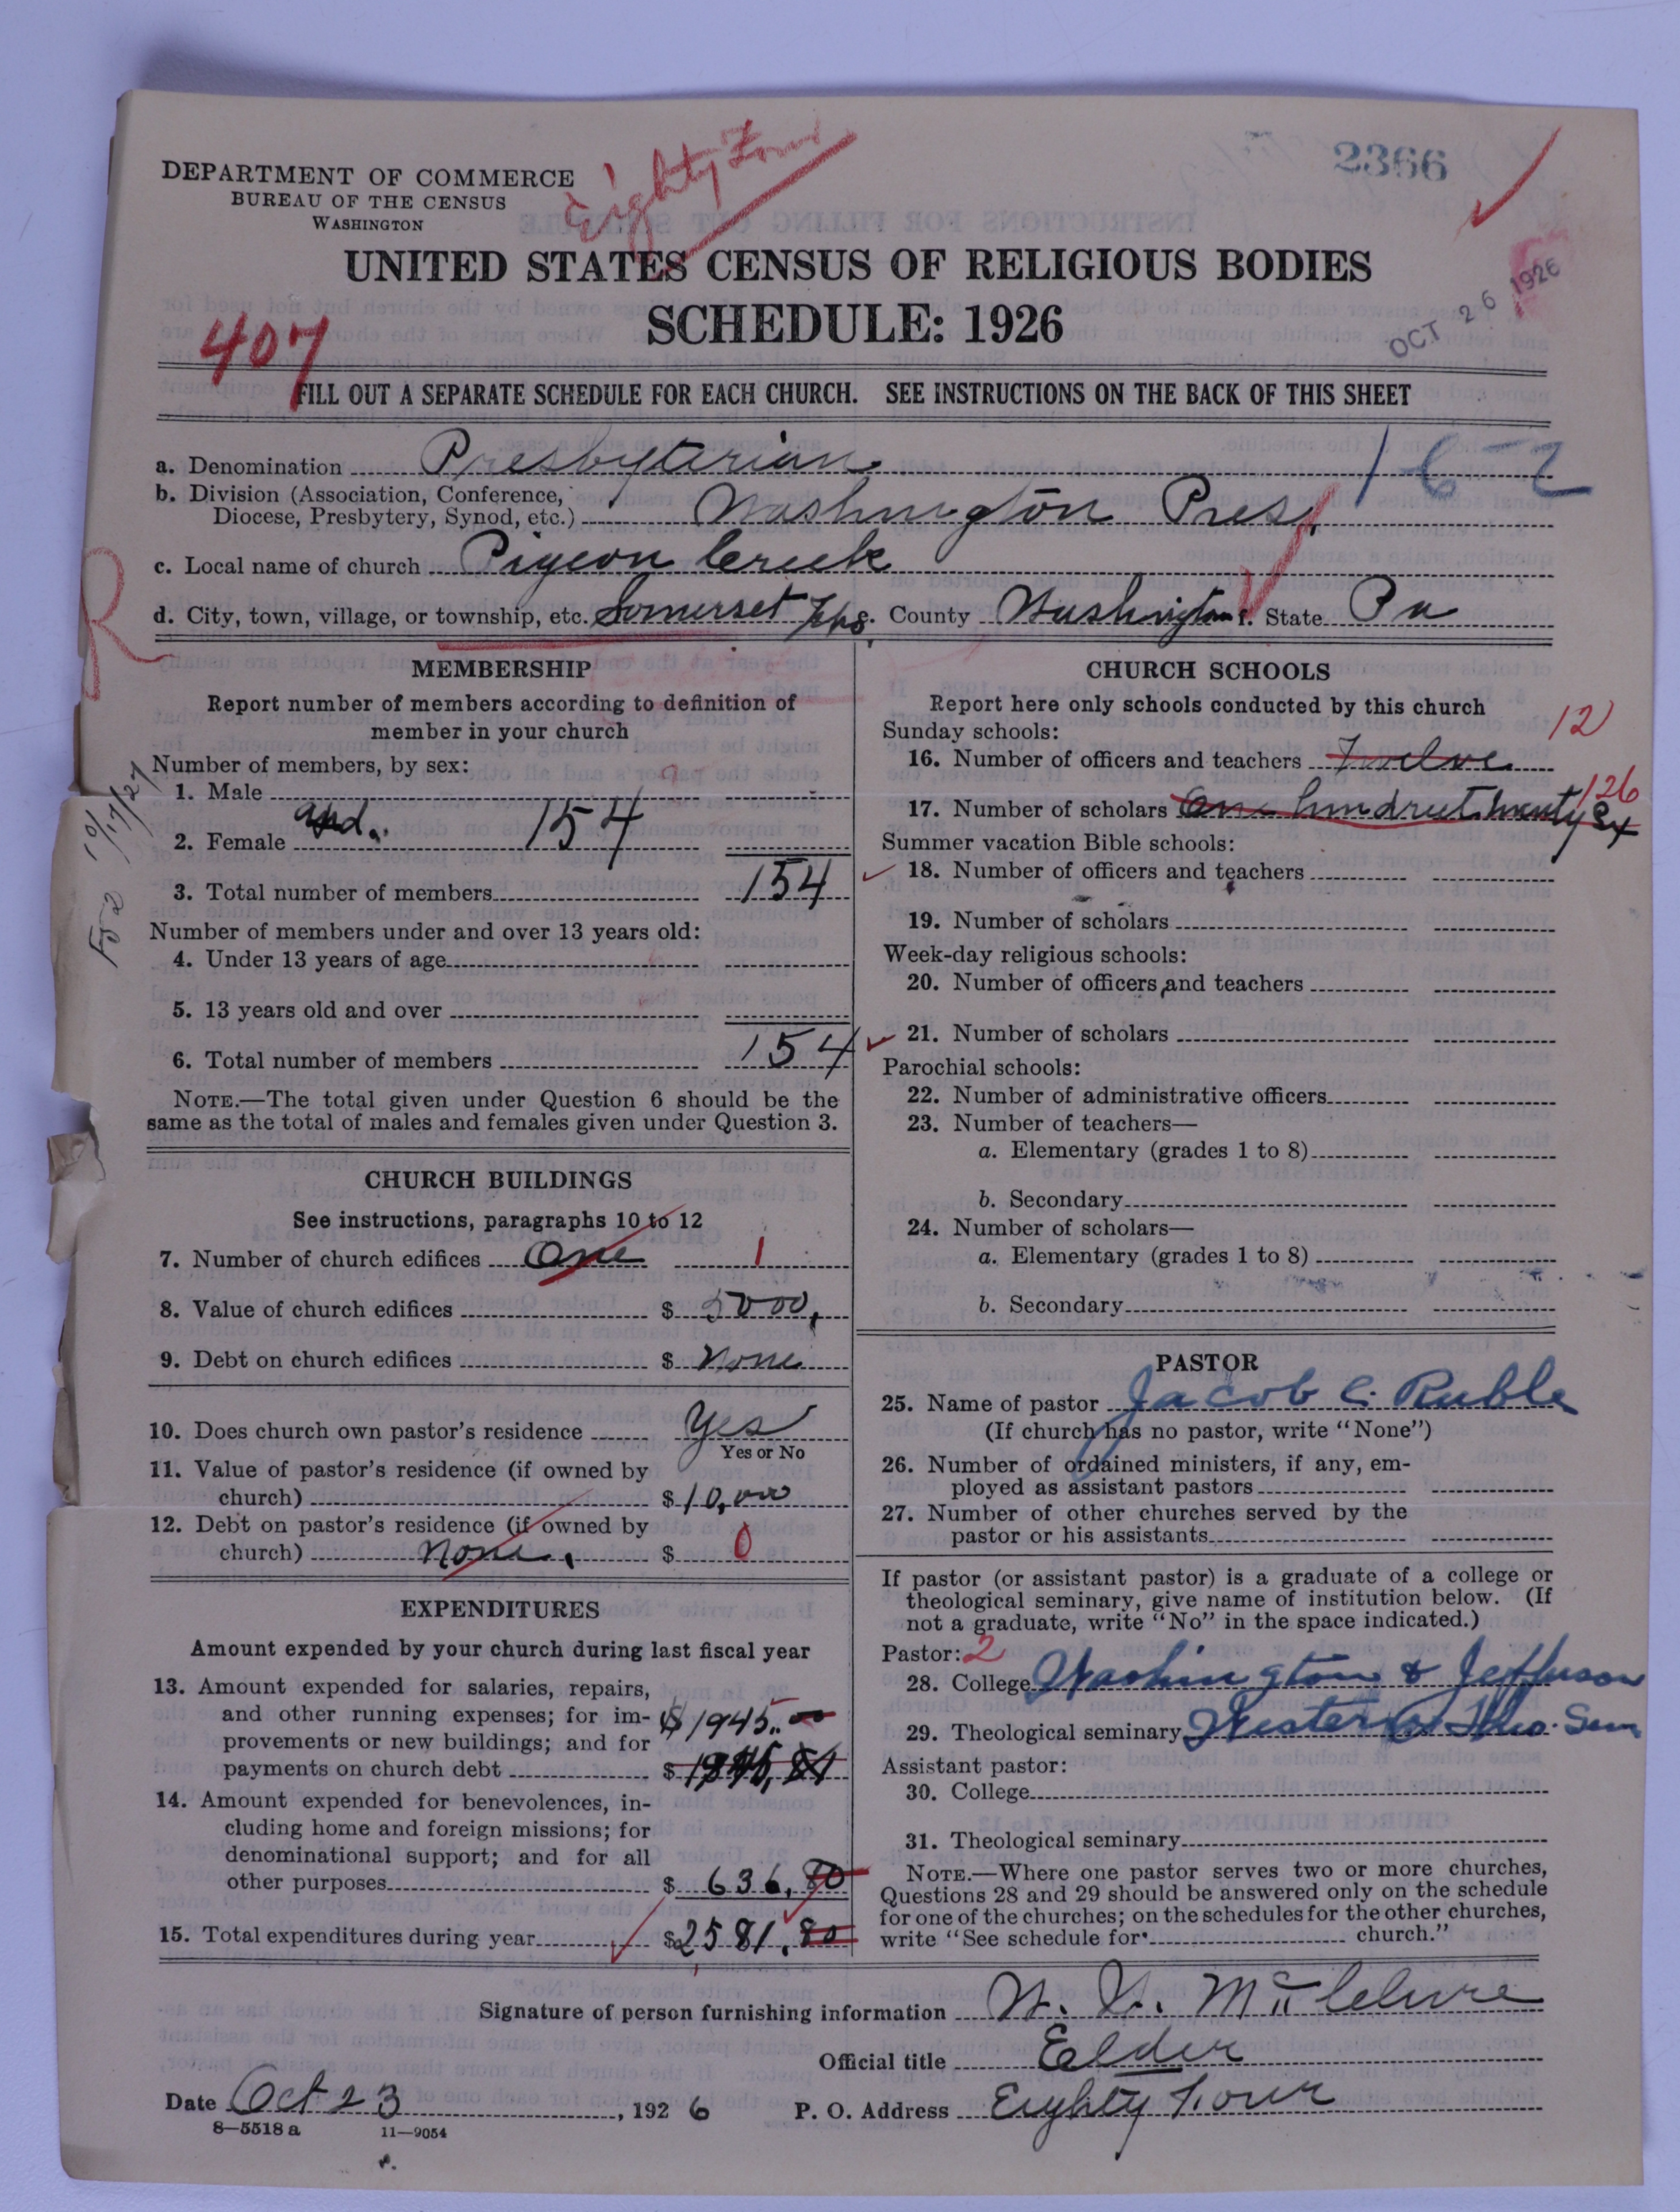 Eighty Four
2366
DEPARTMENT OF COMMERCE
BUREAU OF THE CENSUS
WASHINGTON
UNITED STATES CENSUS OF RELIGIOUS BODIES
SCHEDULE: 1926
OCT 26 1926
407
FILL OUT A SEPARATE SCHEDULE FOR EACH CHURCH. SEE INSTRUCTIONS ON THE BACK OF THIS SHEET
a. Denomination Presbyterian 1-6-2
b. Division (Association, Conference,
Diocese, Presbytery, Synod, etc.) Washington Pres.
c. Local name of church Pigeon Creek
d. City, town, village, or township, etc. Somerset Twp. County Washington State Pa
R
MEMBERSHIP
Report number of members according to definition of
member in your church
Number of members, by sex:
1. Male
and
2. Female 154
3. Total number of members 154
Number of members under and over 13 years old:
4. Under 13 years of age
5. 13 years old and over
6. Total number of members 154
NOTE.—The total given under Question 6 should be the
same as the total of males and females given under Question 3.
10/17/27
CHURCH BUILDINGS
See instructions, paragraphs 10 to 12
7. Number of church edifices One 1
8. Value of church edifices $ 5000,
9. Debt on church edifices $ None
10. Does church own pastor's residence Yes
Yes or No
11. Value of pastor's residence (if owned by
church) $ 10,000
12. Debt on pastor's residence (if owned by
church) None. $ 0
EXPENDITURES
Amount expended by your church during last fiscal year
13. Amount expended for salaries, repairs,
and other running expenses; for im-
provements or new buildings; and for
payments on church debt $
$1945.00
14. Amount expended for benevolences, in-
cluding home and foreign missions; for
denominational support; and for all
other purposes $ 636.80
15. Total expenditures during year $2581.80
CHURCH SCHOOLS
Report here only schools conducted by this church
Sunday schools:
16. Number of officers and teachers Twelve 12
17. Number of scholars One hundred twenty six 126
Summer vacation Bible schools:
18. Number of officers and teachers
19. Number of scholars
Week-day religious schools:
20. Number of officers and teachers
21. Number of scholars
Parochial schools:
22. Number of administrative officers
23. Number of teachers—
a. Elementary (grades 1 to 8)
b. Secondary
24. Number of scholars—
a. Elementary (grades 1 to 8)
b. Secondary
PASTOR
25. Name of pastor Jacob C. Ruble
(If church has no pastor, write "None")
26. Number of ordained ministers, if any, em-
ployed as assistant pastors
27. Number of other churches served by the
pastor or his assistants
If pastor (or assistant pastor) is a graduate of a college or
theological seminary, give name of institution below. (If
not a graduate, write "No" in the space indicated.)
Pastor: 2
28. College Washington & Jefferson
29. Theological seminary Western Theo. Sem
Assistant pastor:
30. College
31. Theological seminary
NOTE.—Where one pastor serves two or more churches,
Questions 28 and 29 should be answered only on the schedule
for one of the churches; on the schedules for the other churches,
write "See schedule for church."
Signature of person furnishing information McClelure
Official title Elder
Date Oct 23, 1926 P. O. Address Eighty Four
8—5518 a 11—9054